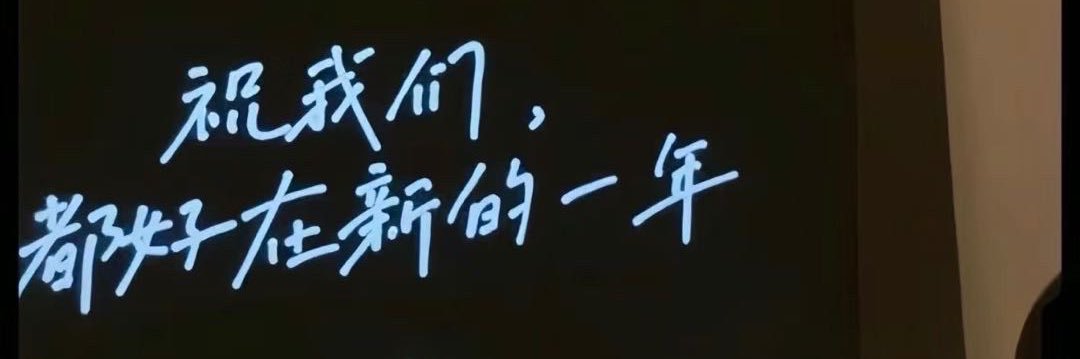 祝我们，
都好在新的一年